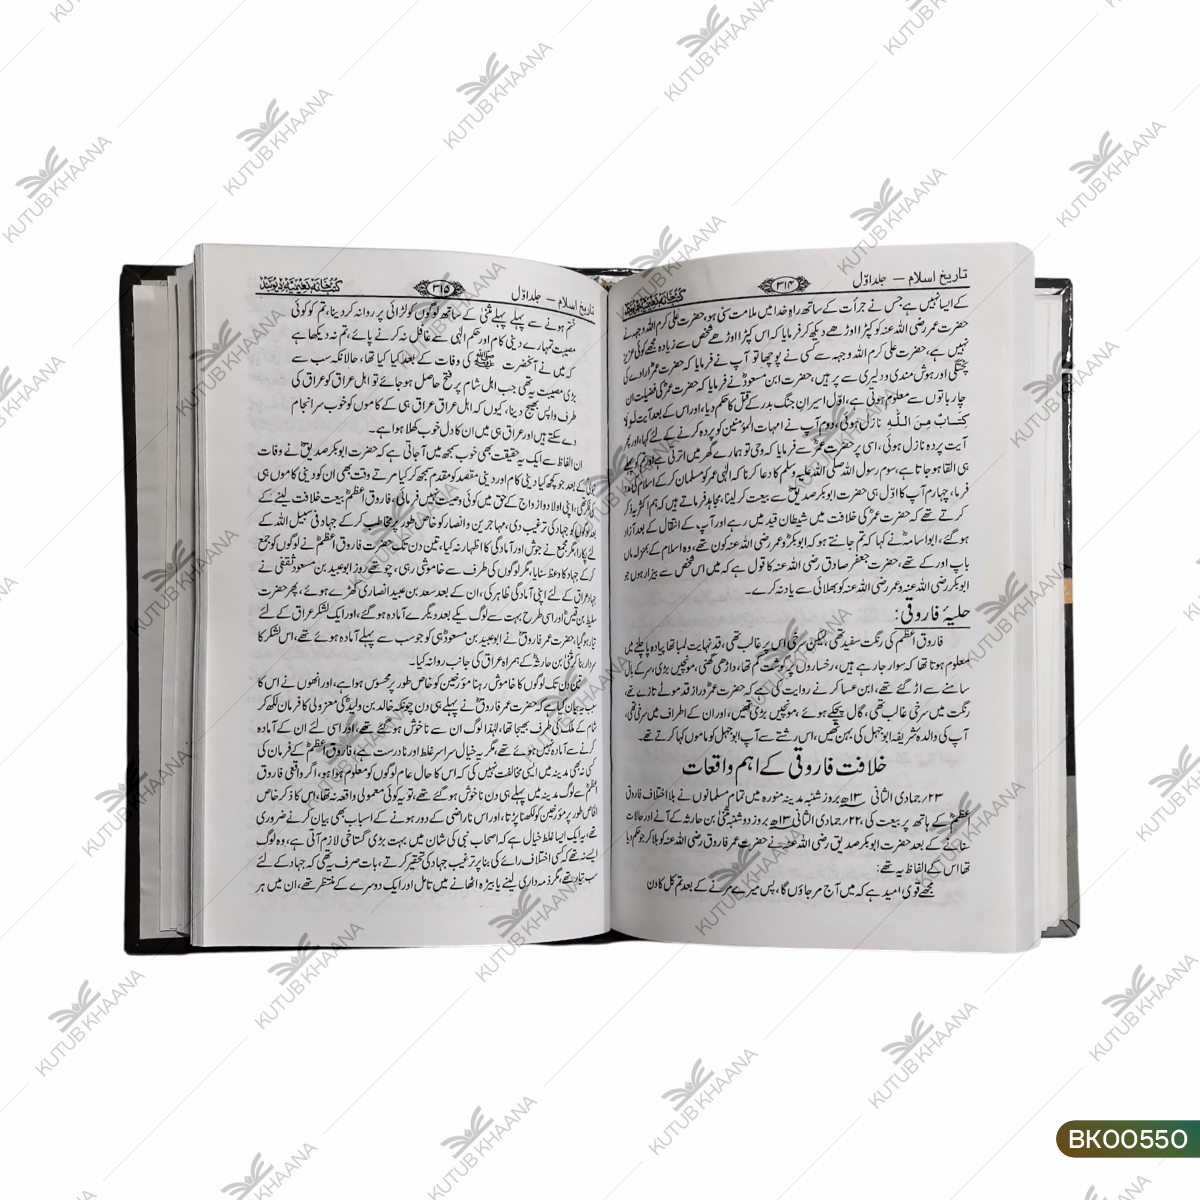 تاریخ اسلام — جلد اوّل ۳۱۴ کتب خانہ نعیمیہ دیوبند
کے ایسا نہیں ہے جس نے جرأت کے ساتھ راہ خدا میں ملامت سنی ہو، حضرت علی کرم اللہ وجہہ نے
حضرت عمر رضی اللہ عنہ کو کپڑا اوڑھے دیکھ کر فرمایا کہ اس کپڑا اوڑھے شخص سے زیادہ مجھے کوئی عزیز
نہیں ہے، حضرت علی کرم اللہ وجہہ سے کسی نے پوچھا تو آپ نے فرمایا کہ حضرت عمرؓ ارادے کی
پختگی اور ہوش مندی و دلیری سے پر ہیں، حضرت ابن مسعودؓ نے فرمایا کہ حضرت عمرؓ کی فضیلت ان
چار باتوں سے معلوم ہوتی ہے، اوّل اسیرانِ جنگ بدر کے قتل کا حکم دیا، اور اس کے بعد آیت
کِتَابٌ مِنَ اللّٰهِ نازل ہوئی، دوم آپ نے امہات المؤمنین کو پردہ کرنے کے لئے کہا، اور پھر
آیت پردہ نازل ہوئی، اسی پر حضرت عمرؓ سے فرمایا کہ وحی تو ہمارے گھر میں اترتی ہے اور تم کو پہلے
ہی القا ہو جاتا ہے، سوم رسول اللہ صلی اللہ علیہ وسلم کا دعا کرنا کہ الٰہی عمر کو مسلمان کر کے اسلام کی مدد
فرما، چہارم آپ کا اوّل ہی حضرت ابوبکر صدیقؓ سے بیعت کر لینا، مجاہد فرماتے ہیں کہ ہم اکثر یہ ذکر
کرتے تھے کہ حضرت عمرؓ کی خلافت میں شیطان قید میں رہے اور آپ کے انتقال کے بعد آزاد
ہو گئے، ابو اسامہ نے کہا کہ تم جانتے ہو کہ ابوبکرؓ و عمر رضی اللہ عنہ کون تھے، وہ اسلام کے بمنزلہ ماں
باپ اور کے تھے، حضرت جعفر صادق رضی اللہ عنہ کا قول ہے کہ میں اس شخص سے بیزار ہوں جو
ابوبکر رضی اللہ عنہ و عمر رضی اللہ عنہ کو بھلائی سے یاد نہ کرے۔
حلیۂ فاروقی:
فاروق اعظم کی رنگت سفید تھی، لیکن سرخی اس پر غالب تھی، قد نہایت لمبا تھا پیادہ پا چلنے میں
معلوم ہوتا تھا کہ سوار جا رہے ہیں، رخساروں پر گوشت کم تھا، داڑھی گھنی، مونچھیں بڑی، سر کے بال
سامنے سے اڑ گئے تھے، ابن عساکر نے روایت کی ہے کہ حضرت عمرؓ دراز قد موٹے تازے تھے،
رنگت میں سرخی غالب تھی، گال پچکے ہوئے، مونچھیں بڑی تھیں، اور ان کے اطراف میں سرخی تھی،
آپ کی والدہ شریفہ ابو جہل کی بہن تھیں، اس رشتے سے آپ ابو جہل کو ماموں کہا کرتے تھے۔
خلافت فاروقی کے اہم واقعات
۲۳؍ جمادی الثانی ۱۳ھ بروز شنبہ مدینہ منورہ میں تمام مسلمانوں نے بلا اختلاف فاروق
اعظمؓ کے ہاتھ پر بیعت کی، ۲۲؍ جمادی الثانی ۱۳ھ بروز دو شنبہ مثنیٰ بن حارثہ کے آنے اور حالات
سنانے کے بعد حضرت ابوبکر صدیق رضی اللہ عنہ نے حضرت عمر فاروق رضی اللہ عنہ کو بلا کر جو حکم دیا
تھا اس کے الفاظ یہ تھے:
مجھے قوی امید ہے کہ میں آج مر جاؤں گا، پس میرے مرنے کے بعد تم کل کا دن
تاریخ اسلام — جلد اوّل ۳۱۵ کتب خانہ نعیمیہ دیوبند
ختم ہونے سے پہلے پہلے مثنیٰ کے ساتھ لوگوں کو لڑائی پر روانہ کر دینا، تم کو کوئی
مصیبت تمہارے دینی کام اور حکم الٰہی سے غافل نہ کرنے پائے، تم نہ دیکھا ہے
کہ میں نے آنحضرت ﷺ کی وفات کے بعد کیا کیا تھا، حالانکہ سب سے
بڑی مصیبت یہ تھی جب اہل شام پر فتح حاصل ہو جائے تو اہل عراق کو عراق کی
طرف واپس بھیج دینا، کیوں کہ اہل عراق عراق ہی کے کاموں کو خوب سرانجام
دے سکتے ہیں اور عراق ہی میں ان کا دل خوب کھلا ہوا ہے۔
ان الفاظ سے ایک یہ حقیقت بھی خوب سمجھ میں آ جاتی ہے کہ حضرت ابوبکر صدیقؓ نے وفات
نبوی کے بعد جو کچھ کیا دینی کام اور دینی مقصد کو مقدم سمجھ کر کیا مرتے وقت بھی ان کو دینی کاموں ہی
کی فکر تھی، اپنی اولاد و ازواج کے حق میں کوئی وصیت نہیں فرمائی، فاروق اعظمؓ بیعت خلافت لینے کے
بعد لوگوں کو جہاد کی ترغیب دی، مہاجرین و انصار کو خاص طور پر مخاطب کر کے جہاد فی سبیل اللہ کے
لئے پکارا، مگر مجمع نے جوش اور آمادگی کا اظہار نہ کیا، تین دن تک حضرت فاروق اعظمؓ نے لوگوں کو جمع
کر کے جہاد کا وعظ سنایا، مگر لوگوں کی طرف سے خاموشی رہی، چوتھے روز ابو عبید بن مسعود ثقفی نے
جہاد عراق کے لئے اپنی آمادگی ظاہر کی، ان کے بعد سعد بن عبید انصاری کھڑے ہوئے، پھر حضرت
سلیط بن قیس اور اسی طرح بہت سے لوگ یکے بعد دیگرے آمادہ ہو گئے، اور ایک لشکر عراق کے لئے
تیار ہو گیا، حضرت عمر فاروقؓ نے ابو عبید بن مسعود ہی کو جو سب سے پہلے آمادہ ہوئے تھے، اس لشکر کا
سردار بنا کر مثنیٰ بن حارثہ کے ہمراہ عراق کی جانب روانہ کیا۔
تین دن تک لوگوں کا خاموش رہنا مؤرخین کو خاص طور پر محسوس ہوا ہے، اور انھوں نے اس کا
سبب یہ بیان کیا ہے کہ حضرت عمر فاروقؓ نے پہلے ہی دن چونکہ خالد بن ولید کی معزولی کا فرمان لکھ کر
شام کے ملک کی طرف بھیجا تھا، لہٰذا لوگ ان سے ناخوش ہو گئے تھے، اور اسی لئے ان کے آمادہ
کرنے سے آمادہ نہیں ہوئے تھے، مگر یہ خیال سراسر غلط اور نادرست ہے، فاروق اعظمؓ کے فرمان کی
کسی نے بھی مدینہ میں ایسی مخالفت نہیں کی کہ اس کا حال عام لوگوں کو معلوم ہوا ہو، اگر واقعی فاروق
اعظمؓ سے لوگ مدینہ میں پہلے ہی دن ناخوش ہو گئے تھے، تو یہ کوئی معمولی واقعہ نہ تھا، اس کا ذکر خاص
الخاص طور پر مؤرخین کو لکھنا پڑتا، اور اس ناراضی کے دور ہونے کے اسباب بھی بیان کرنے ضروری
تھے، یہ ایک ایسا غلط خیال ہے کہ اصحاب نبی کی شان میں بہت بڑی گستاخی لازم آتی ہے، وہ لوگ
ایسے نہ تھے کہ کسی اختلاف رائے کی بنا پر ترغیب جہاد کی تحقیر کرتے، بات صرف یہ تھی کہ جہاد کے لئے
سب تیار تھے، مگر ذمہ داری لینے یا بیڑہ اٹھانے میں تامل اور ایک دوسرے کے منتظر تھے، ان میں ہر
KUTUB KHAANA
BK00550